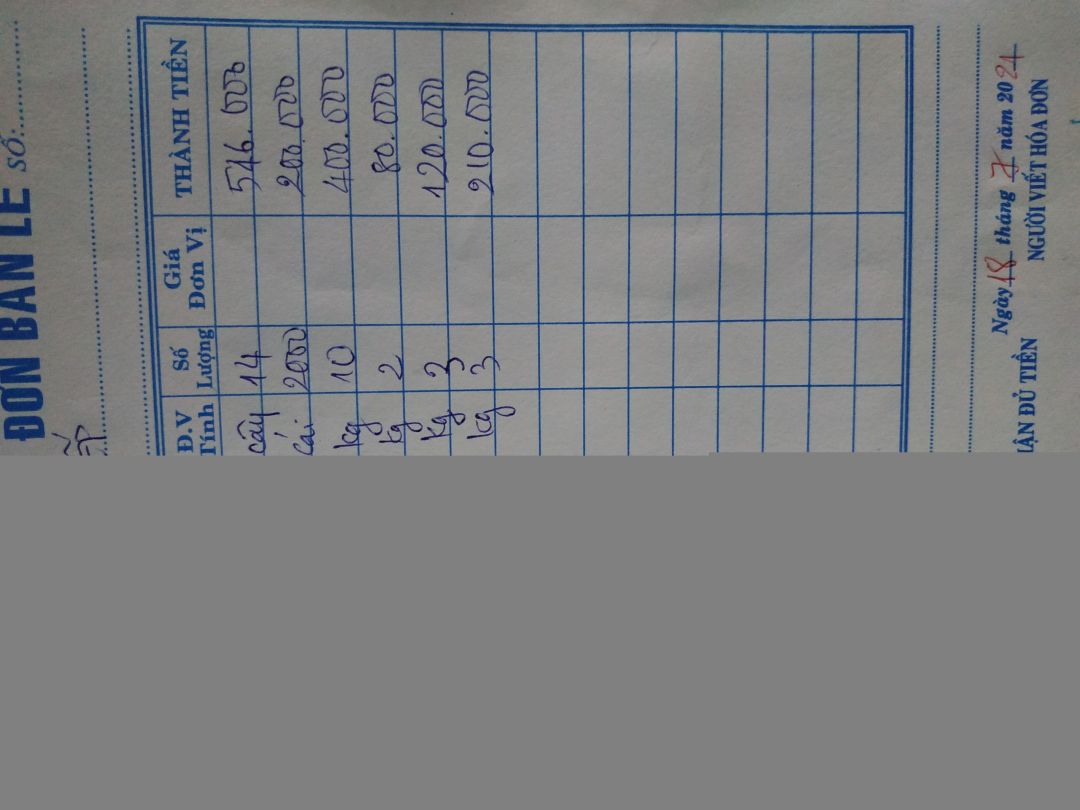 ĐƠN BÁN LẺ SỐ:
Đ.V Tính Số Lượng Giá Đơn Vị THÀNH TIỀN
cây 14 546.000
cái 2000 200.000
kg 10 400.000
kg 2 80.000
kg 3 120.000
kg 3 210.000
Ngày 18 tháng 7 năm 2021
ĐỦ TIỀN NGƯỜI VIẾT HÓA ĐƠN